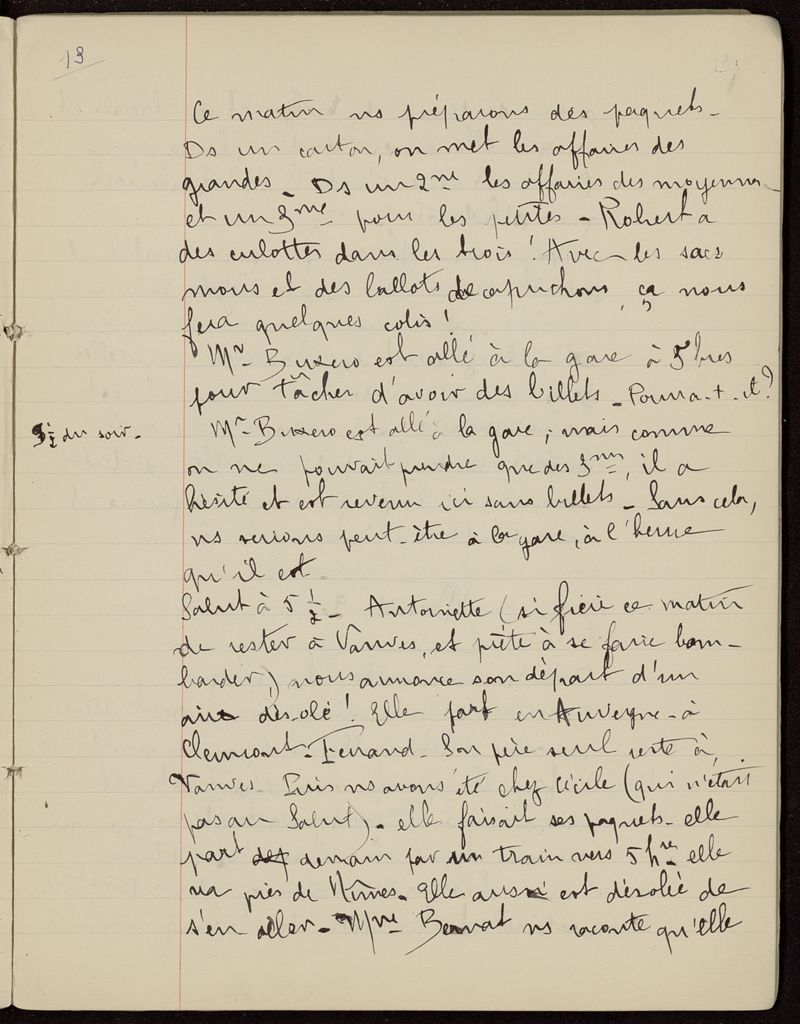 13
Ce matin ns préparons des paquets -
Ds un carton, on met les affaires des
grandes - Ds un 2me les affaires des moyennes -
et un 3me pour les petites - Robert a
des culottes dans les trois ! Avec les sacs
mous et des ballots de capuchons, ça nous
fera quelques colis !
Mr Buxero est allé à la gare à 5 hres
pour tâcher d'avoir des billets - Pourra-t-il ?
3 1/2 du soir -
Mr Buxero est allé à la gare ; mais comme
on ne pouvait prendre que des 3mes, il a
hésité et est revenu ici sans billets - Sans cela,
ns serions peut-être à la gare, à l'heure
qu'il est.
Salut à 5 1/2 - Antoinette (si fière ce matin
de rester à Vanves, et prête à se faire bom-
barder,) nous annonce son départ d'un
air désolé ! Elle part en Auvergne - à
Clermont-Ferrand - Son père seul reste à
Vanves. Puis ns avons été chez Cécile (qui n'était
pas au Salut) - elle faisait ses paquets - elle
part demain par un train vers 5 hres - elle
va près de Nîmes - Elle aussi est désolée de
s'en aller - Mme Bernat ns raconte qu'elle